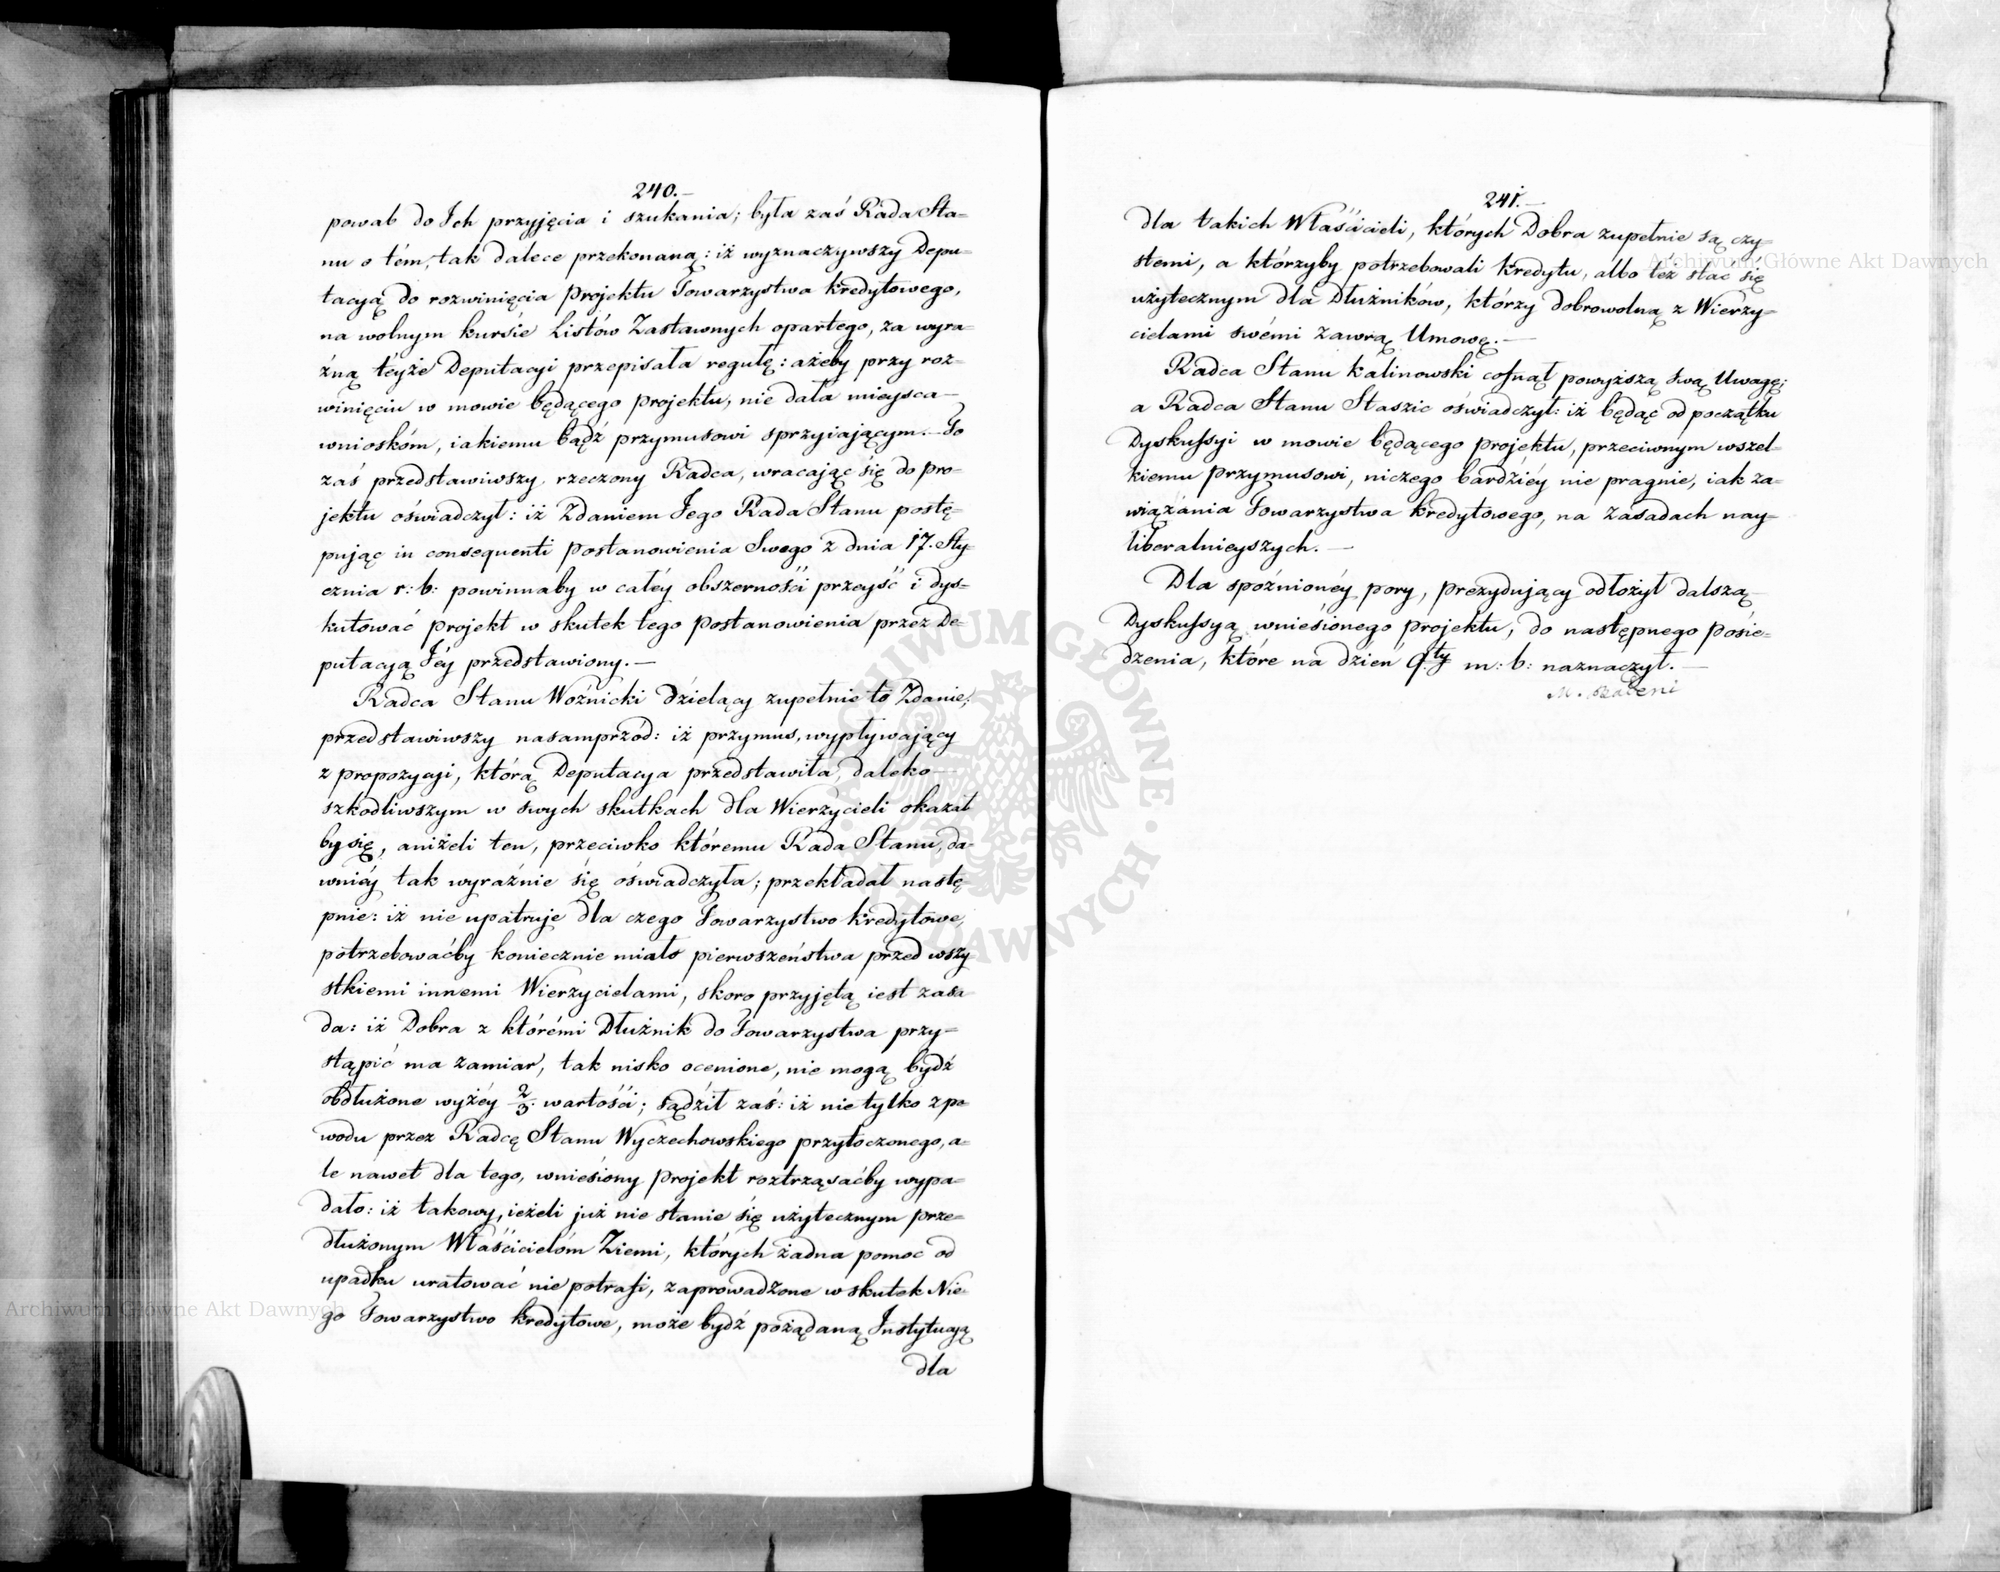 240.—
powab do Ich przyjęcia i szukania; była zaś Rada Sta=
nu o tém, tak dalece przekonaną: iż wyznaczywszy Depu=
tacyą do rozwinięcia Projektu Towarzystwa kredytowego,
na wolnym kursie Listów Zastawnych opartego, za wyra=
źną téyże Deputacyi przepisała regułę: ażeby przy roz=
winięciu w mowie będącego projektu, nie dała mieysca—
wnioskóm, iakiemu bądź przymusowi sprzyiającym.— To
zaś przedstawiwszy rzeczony Radca, wracając się do pro=
jektu oświadczył: iż Zdaniem Jego Rada Stanu postę=
pując in consequenti Postanowienia Swego z dnia 17. Sty=
cznia r: b: powinnaby w całéy obszerności przeyść i dys=
kutować projekt w skutek tego Postanowienia przez De=
putacyą Jéy przedstawiony.—
Radca Stanu Woźnicki dzielący zupełnie to Zdanie,
przedstawiwszy nasamprzód: iż przymus, wypływający
z propozycyi, którą Deputacya przedstawiła, daleko—
szkodliwszym w swych skutkach dla Wierzycieli okazał
by się, aniżeli ten, przeciwko któremu Rada Stanu, da=
wniéy tak wyraźnie się oświadczyła; przekładał nastę=
pnie: iż nie upatruje dla czego Towarzystwo kredytowe,
potrzebowaćby koniecznie miało pierwszeństwa przed wszy=
stkiemi innemi Wierzycielami, skoro przyjętą iest zasa=
da: iż Dobra z którémi Dłużnik do Towarzystwa przy=
stąpić ma zamiar, tak nisko ocenione, nie mogą bydź
obdłużone wyżéy 2/3. wartości; sądził zaś: iż nie tylko z po=
wodu przez Radcę Stanu Wyczechowskiego przytoczonego, a=
le nawet dla tego, wniesiony projekt roztrząsaćby wypa=
dało: iż takowy, ieżeli już nie stanie się użytecznym prze=
dłużonym Właścicielóm Ziemi, których żadna pomoc od
upadku uratować nie potrafi, zaprowadzone w skutek Nie=
go Towarzystwo kredytowe, może bydź pożądaną Instytucyą
dla
241.—
dla takich Właścicieli, których Dobra zupełnie są czy=
stemi, a którzyby potrzebowali kredytu, albo też stać się
użytecznym dla Dłużników, którzy dobrowolną z Wierzy=
cielami swémi zawrą Umowę.—
Radca Stanu Kalinowski cofnął powyższą swą Uwagę;
a Radca Stanu Staszic oświadczył: iż będąc od początku
Dyskussyi w mowie będącego projektu, przeciwnym wszel=
kiemu przymusowi, niczego bardziéy nie pragnie, iak za=
wiązania Towarzystwa kredytowego, na zasadach nay=
liberalnieyszych.—
Dla spóźnionéy pory, prezydujący odłożył dalszą—
Dyskussyą wniesionego projektu, do następnego Posie=
dzenia, które na dzień 9ty m: b: naznaczył.—
M. Badeni
Archiwum Główne Akt Dawnych
Archiwum Główne Akt Dawnych
ARCHIWUM GŁÓWNE AKT DAWNYCH